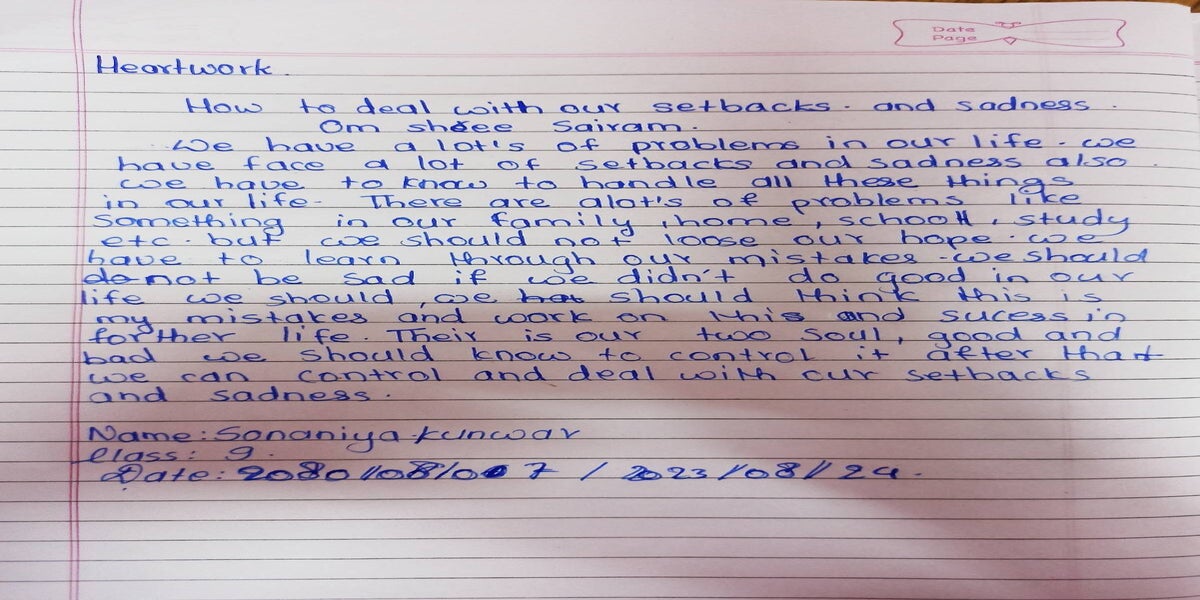 Date
Page
Heartwork.
How to deal with our setbacks. and sadness.
Om shree Sairam.
We have a lot's of problems in our life. we
have face a lot of setbacks and sadness also.
we have to know to handle all these things
in our life. There are alot's of problems like
something in our family, home, school, study
etc. but we should not loose our hope. we
have to learn through our mistakes. we should
do not be sad if we didn't do good in our
life we should, we but should think this is
my mistakes and work on this and sucess in
forther life. Their is our two soul, good and
bad we should know to control it after that
we can control and deal with our setbacks
and sadness.
Name: Sonaniya Kunwar
Class: 9.
Date: 2080/08/07 / 2023/08/24.